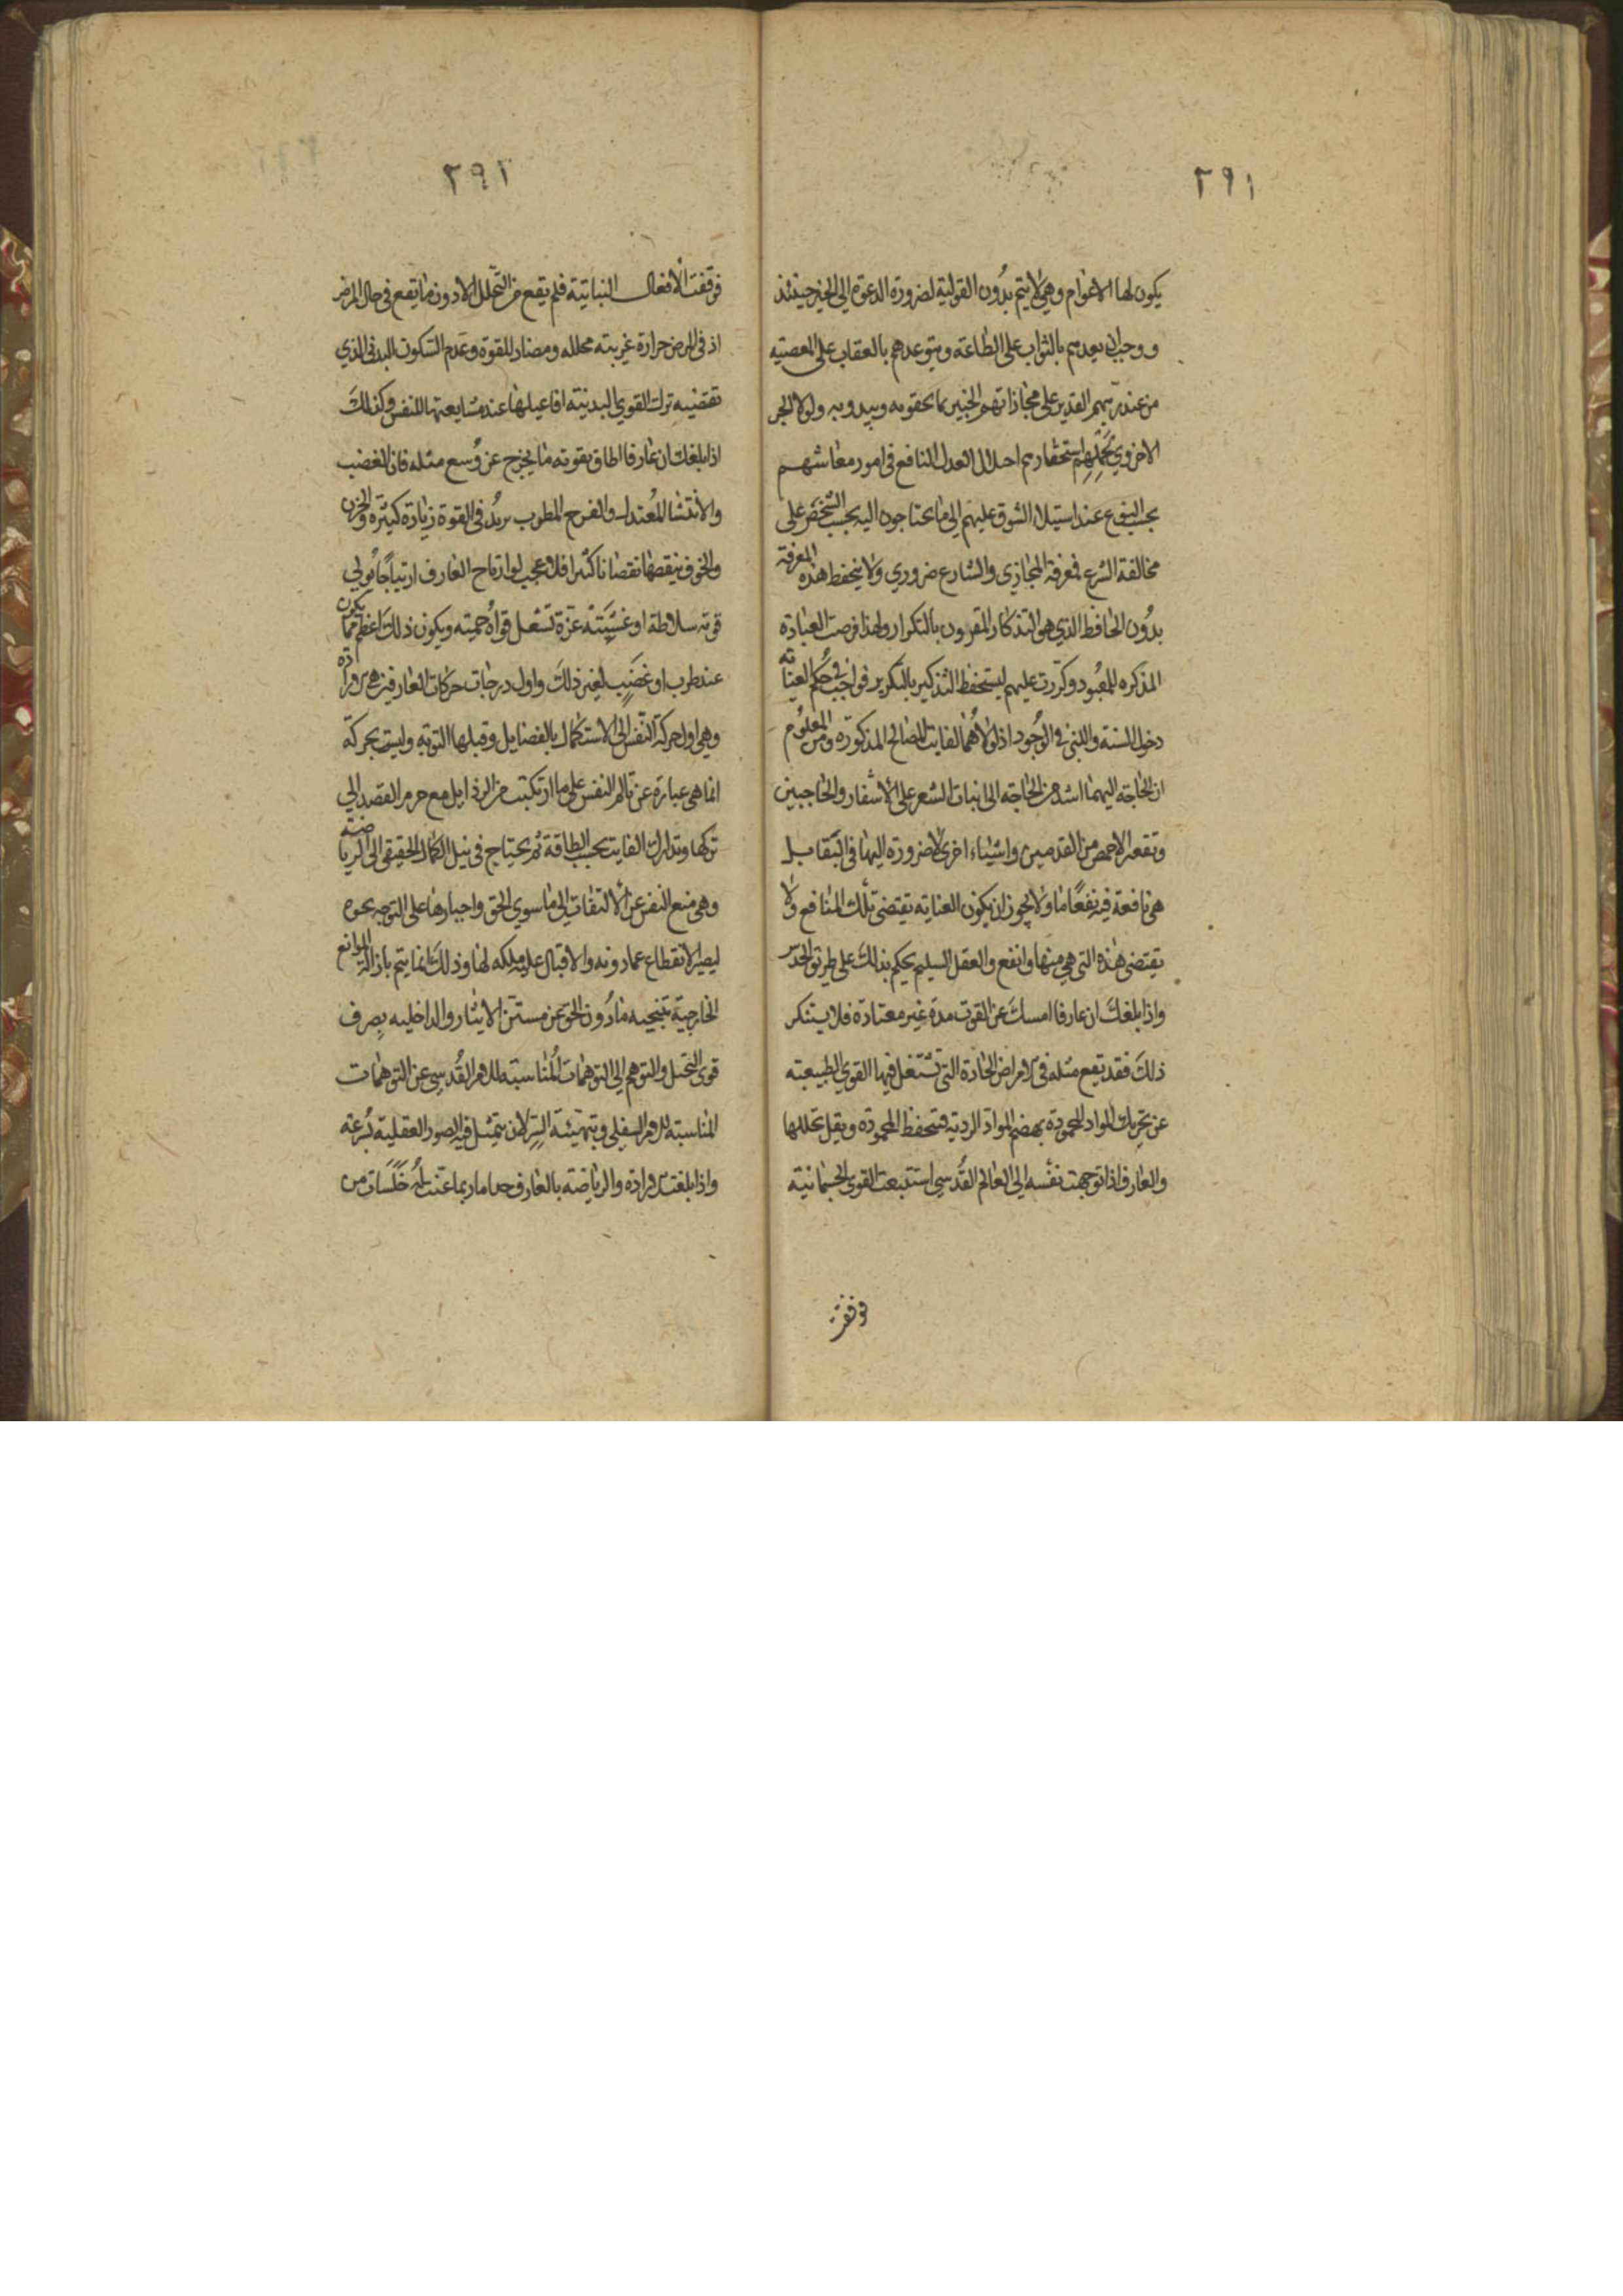 ٢٩١
يكون لها الاعوام وهي لا يتم بدُون القولية لضرورة الدعوة الي الخير حينئذ
ووجب ان يعدهم بالثواب على الطاعة ويتوعدهم بالعقاب على المعصية
من عند ربهم القدير على مجازاتهم الخبير بما يخفونه ويبدونه ولولا الجزا
الاخروي استحقارهم اختلال العدل النافع في امور معاشهم
بحسب النوع عند استيلا الشوق عليهم الى ما يحتاجون اليه بحسب الشخص على
مخالفة الشرع فمعرفة المجازي والشارع ضروري ولا ينحفظ هذه المعرفة
بدُون الحافظ الذي هو التذكار المقرون بالتكرار ولهذا فرضت العبادة
المذكره للمعبُود وكررت عليهم ليستحفظ التذكير بالتكرير فواجب في حُكم العناية
دخول السنة والنبي في الوجُود اذ لولاهُما لفايت المصالح المذكورة ومن المعلُوم
ان الحاجة اليهما اشد من الحاجة الى انبات الشعر على الاشفار والحاجبين
وتقعر الاخمص من القدمين واشياء اخرى لا ضرورة اليها في البقا بل
هي نافعة فيه نفعًا ما ولا يجوز ان يكون العناية تقتضي تلك المنافع ولا
يقتضي هذه التي هي منها وانفع والعقل السليم يحكم بذلك على طريق الحدس
واذا بلغك ان عارفا امسك عن القوت مدة غير معتادة فلا يستنكر
ذلك فقد يقع مثله في الامراض الحادة التي تشتغل فيها القوي الطبيعية
عن تحريك المواد المحمودة بهضم المواد الردية فتحفظ المحمودة ويقل تحللها
والعارف اذا توجهت نفسه الي العالم القُدسي استتبعت القوي الجسمانية
فوقفت
٢٩٢
فوقفت الافعال النباتية فلم يقع من التحلل الا دون ما يقع في حال المرض
اذ في المرض حرارة غريبة محلله ومضار للقوة وعدم السكون البدني الذي
تقتضيه ترك القوي البدنية افاعيلها عند مشايعتها للنفس وكذلك
اذا بلغك ان عارفا اطاق بقوته ما يخرج عن وُسع مثله فان الغضب
والانتشا المُعتدل والفرح المطرب يزيدُ في القوة زيادة كثيرة والحزن
والخوف ينقصها نقصانا كثيرا فلا عجب لو ارتاح العارف ارتياحًا يُولي
قوته سلاطة او غشيته عزة تشعل قواهُ حمية ويكون ذلك اعظم مما يكون
عند طرب او غضب لغير ذلك واول درجات حركات العارفين هي الارادة
وهي اول حركة النفس الى الاستكمال بالفضايل وقبلها التوبة وليست بحركة
انما هي عبارة عن تالم النفس على ما ارتكبت من الرذايل مع جزم القصد الي
تركها وتدارك الفايت بحسب الطاقة ثم يحتاج في نيل الكمال الحقيقي الى الرياضة
وهي منع النفس عن الالتفات الى ما سوي الحق واجبارها على التوجه نحوه
ليصير الانقطاع عما دونه والاقبال عليه ملكه لها وذلك انما يتم بازالة الموانع
الخارجية بتنحيه ما دُون الحق عن مستن الايثار والداخليه بصرف
قوى التخيل والتوهم الى التوهمات المُناسبة للامر القُدسي عن التوهمات
المناسبة للامر السفلي وبتهيئة السر لان يتمثل فيه الصور العقلية بسُرعة
واذا بلغت الارادة والرياضة بالعارف حدا ما ربما عنت لهُ خلسات من